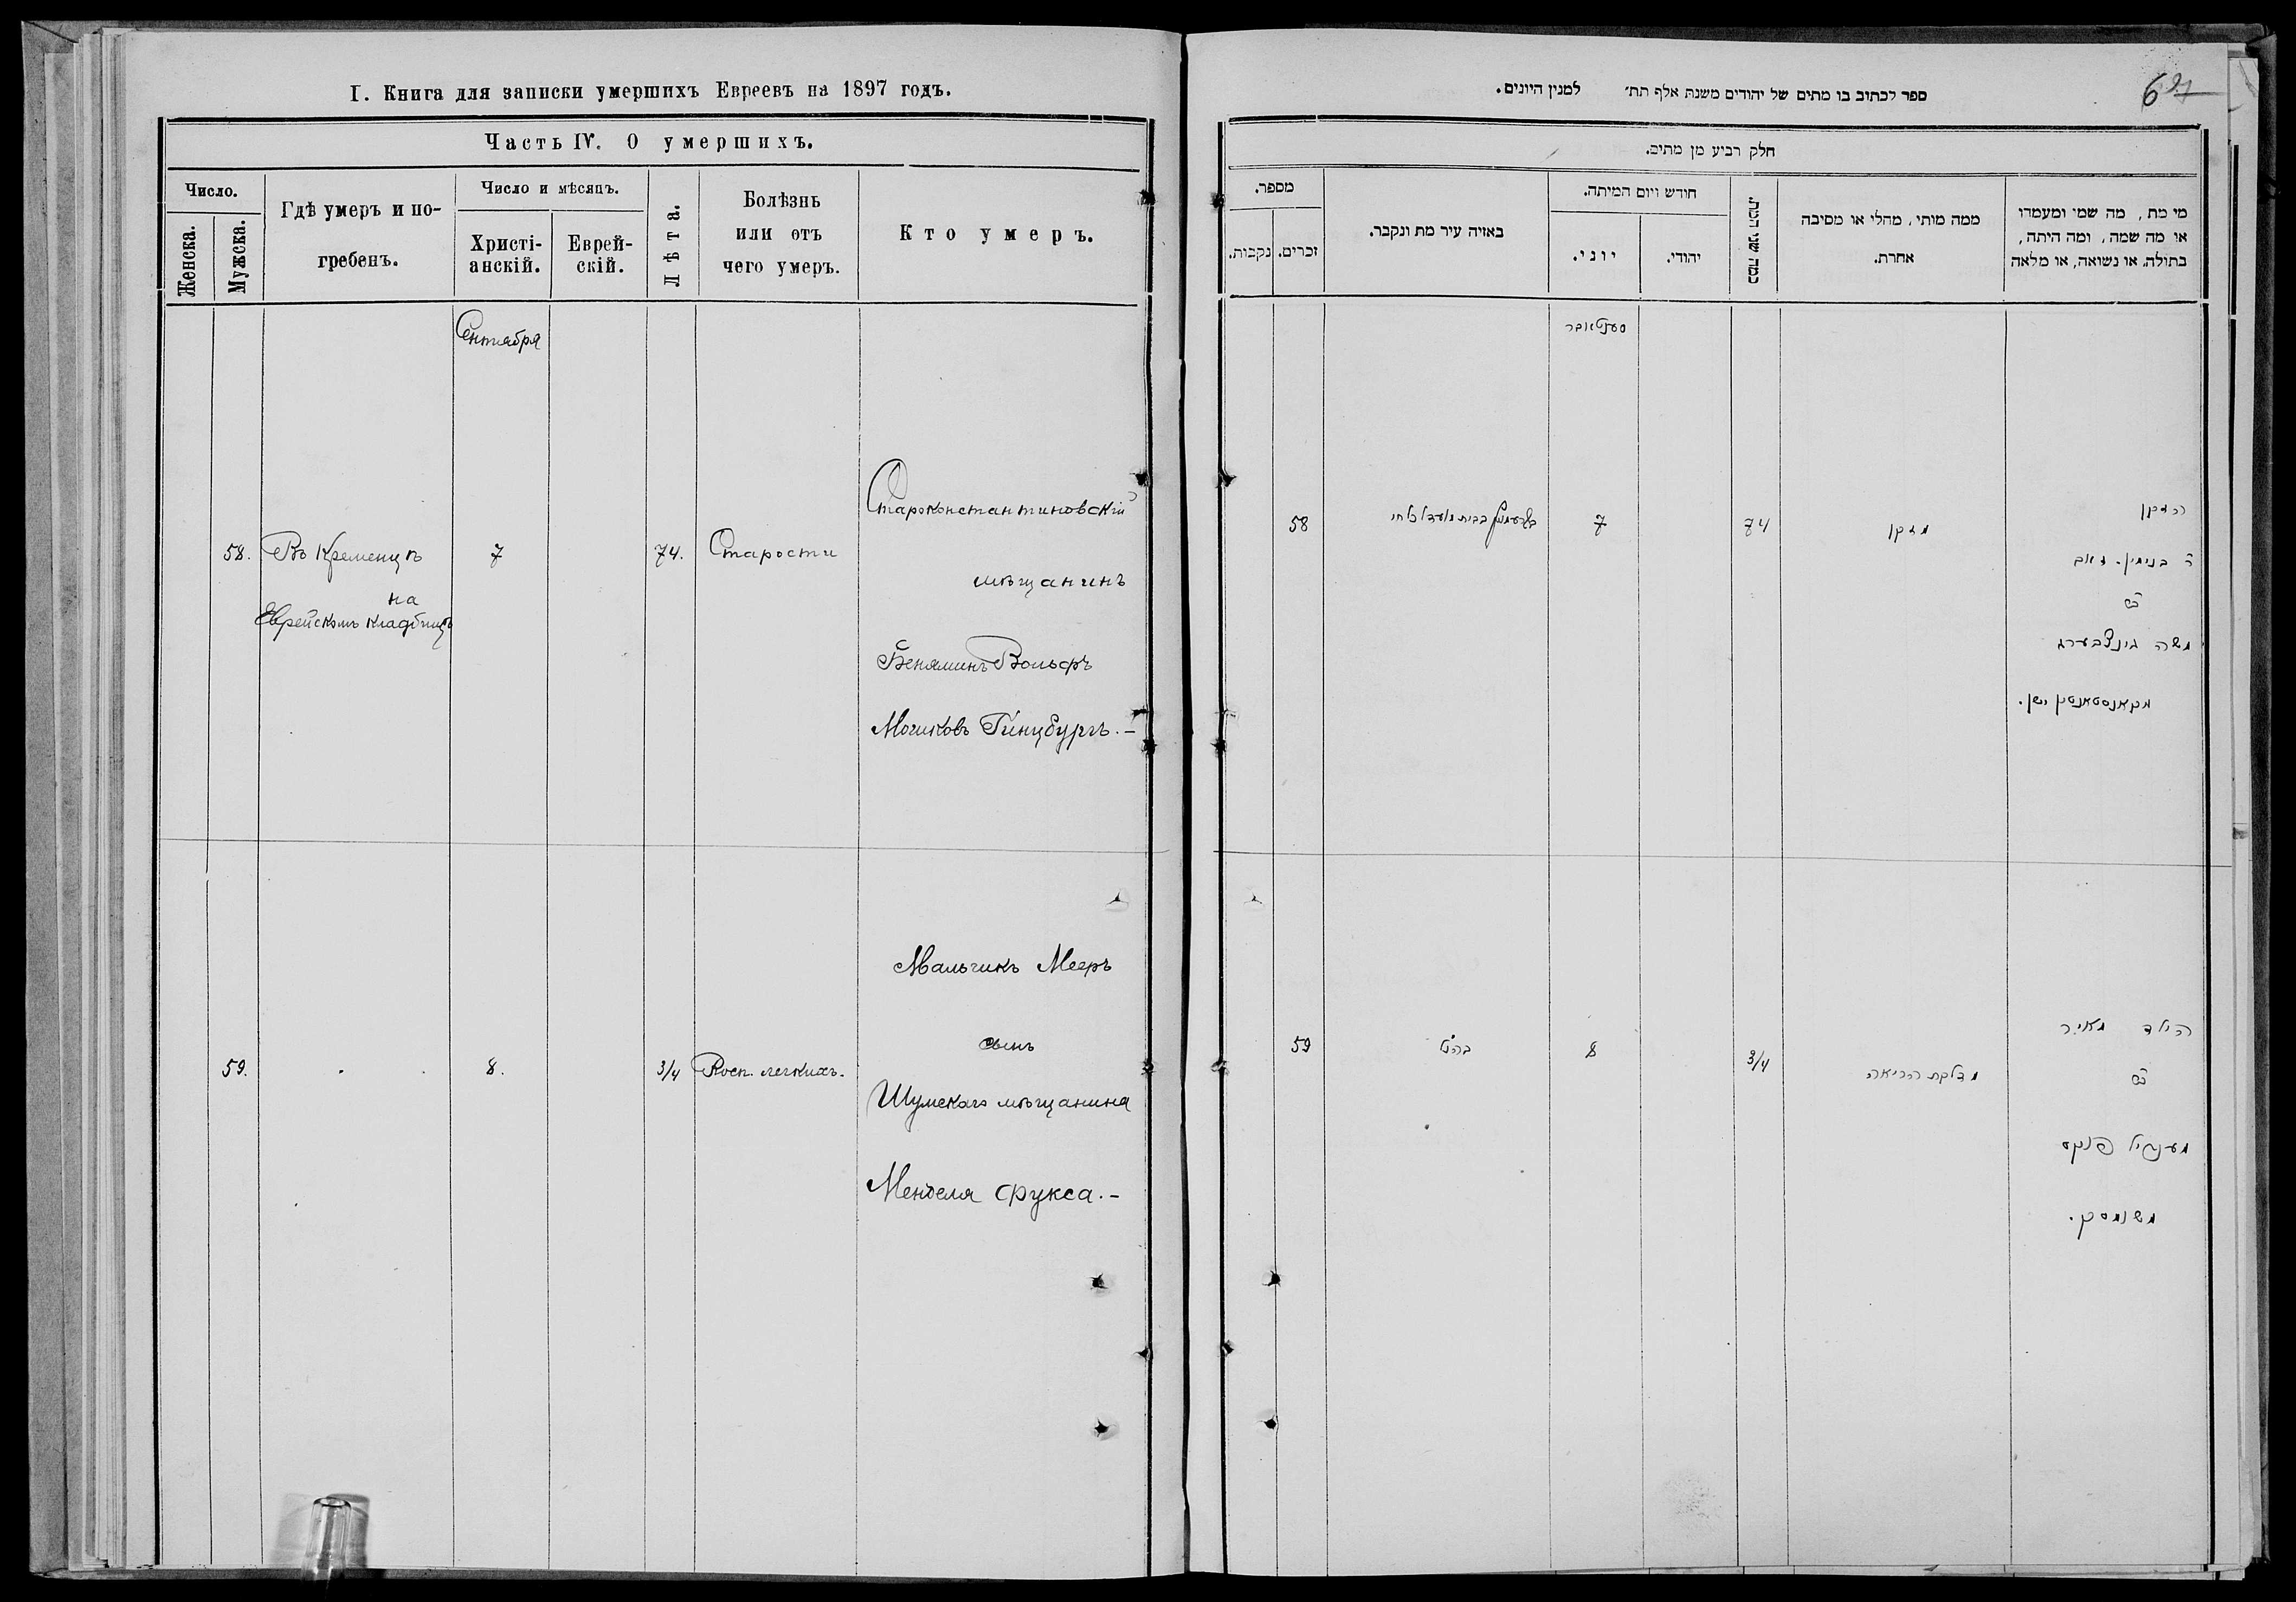 I. Книга для записки умершихъ Евреевъ на 1897 годъ.
Часть IV. О умершихъ.
Число.
Женска.
Мужска.
Гдѣ умеръ и по-
гребенъ.
Число и мѣсяцъ.
Христі-
анскій.
Еврей-
скій.
Лѣта.
Болѣзнь
или отъ
чего умеръ.
Кто умеръ.
Сентября
58.
Въ Кременцѣ
на
Еврейскомъ кладбищѣ
7
74.
Старости
Староконстантиновскій
мѣщанинъ
Беняминъ Вольфъ
Мошковъ Гинцбургъ.—
59.
8.
3/4
Восп. легкихъ.
Мальчикъ Мееръ
сынъ
Шумскаго мѣщанина
Менделя Фукса.—
ספר לכתוב בו מתים של יהודים משנת אלף תת׳ למנין היונים.
חלק רביע מן מתים.
מספר.
נקבות.
זכרים.
באזיה עיר מת ונקבר.
חודש ויום המיתה.
יוני.
יהודי.
כמה שני המת.
ממה מותי, מהלי או מסיבה
אחרת.
מי מת, מה שמי ומעמדו
או מה שמה, ומה היתה,
בתולה, או נשואה, או מלאה
סענטאבר
58
7
74
מזקן
הזקן
ר׳ בנימין זאב
משה גינצבערג
59
8
3/4
מדלקת הריאה
הילד מאיר
מענדיל פוקס
משומסק.